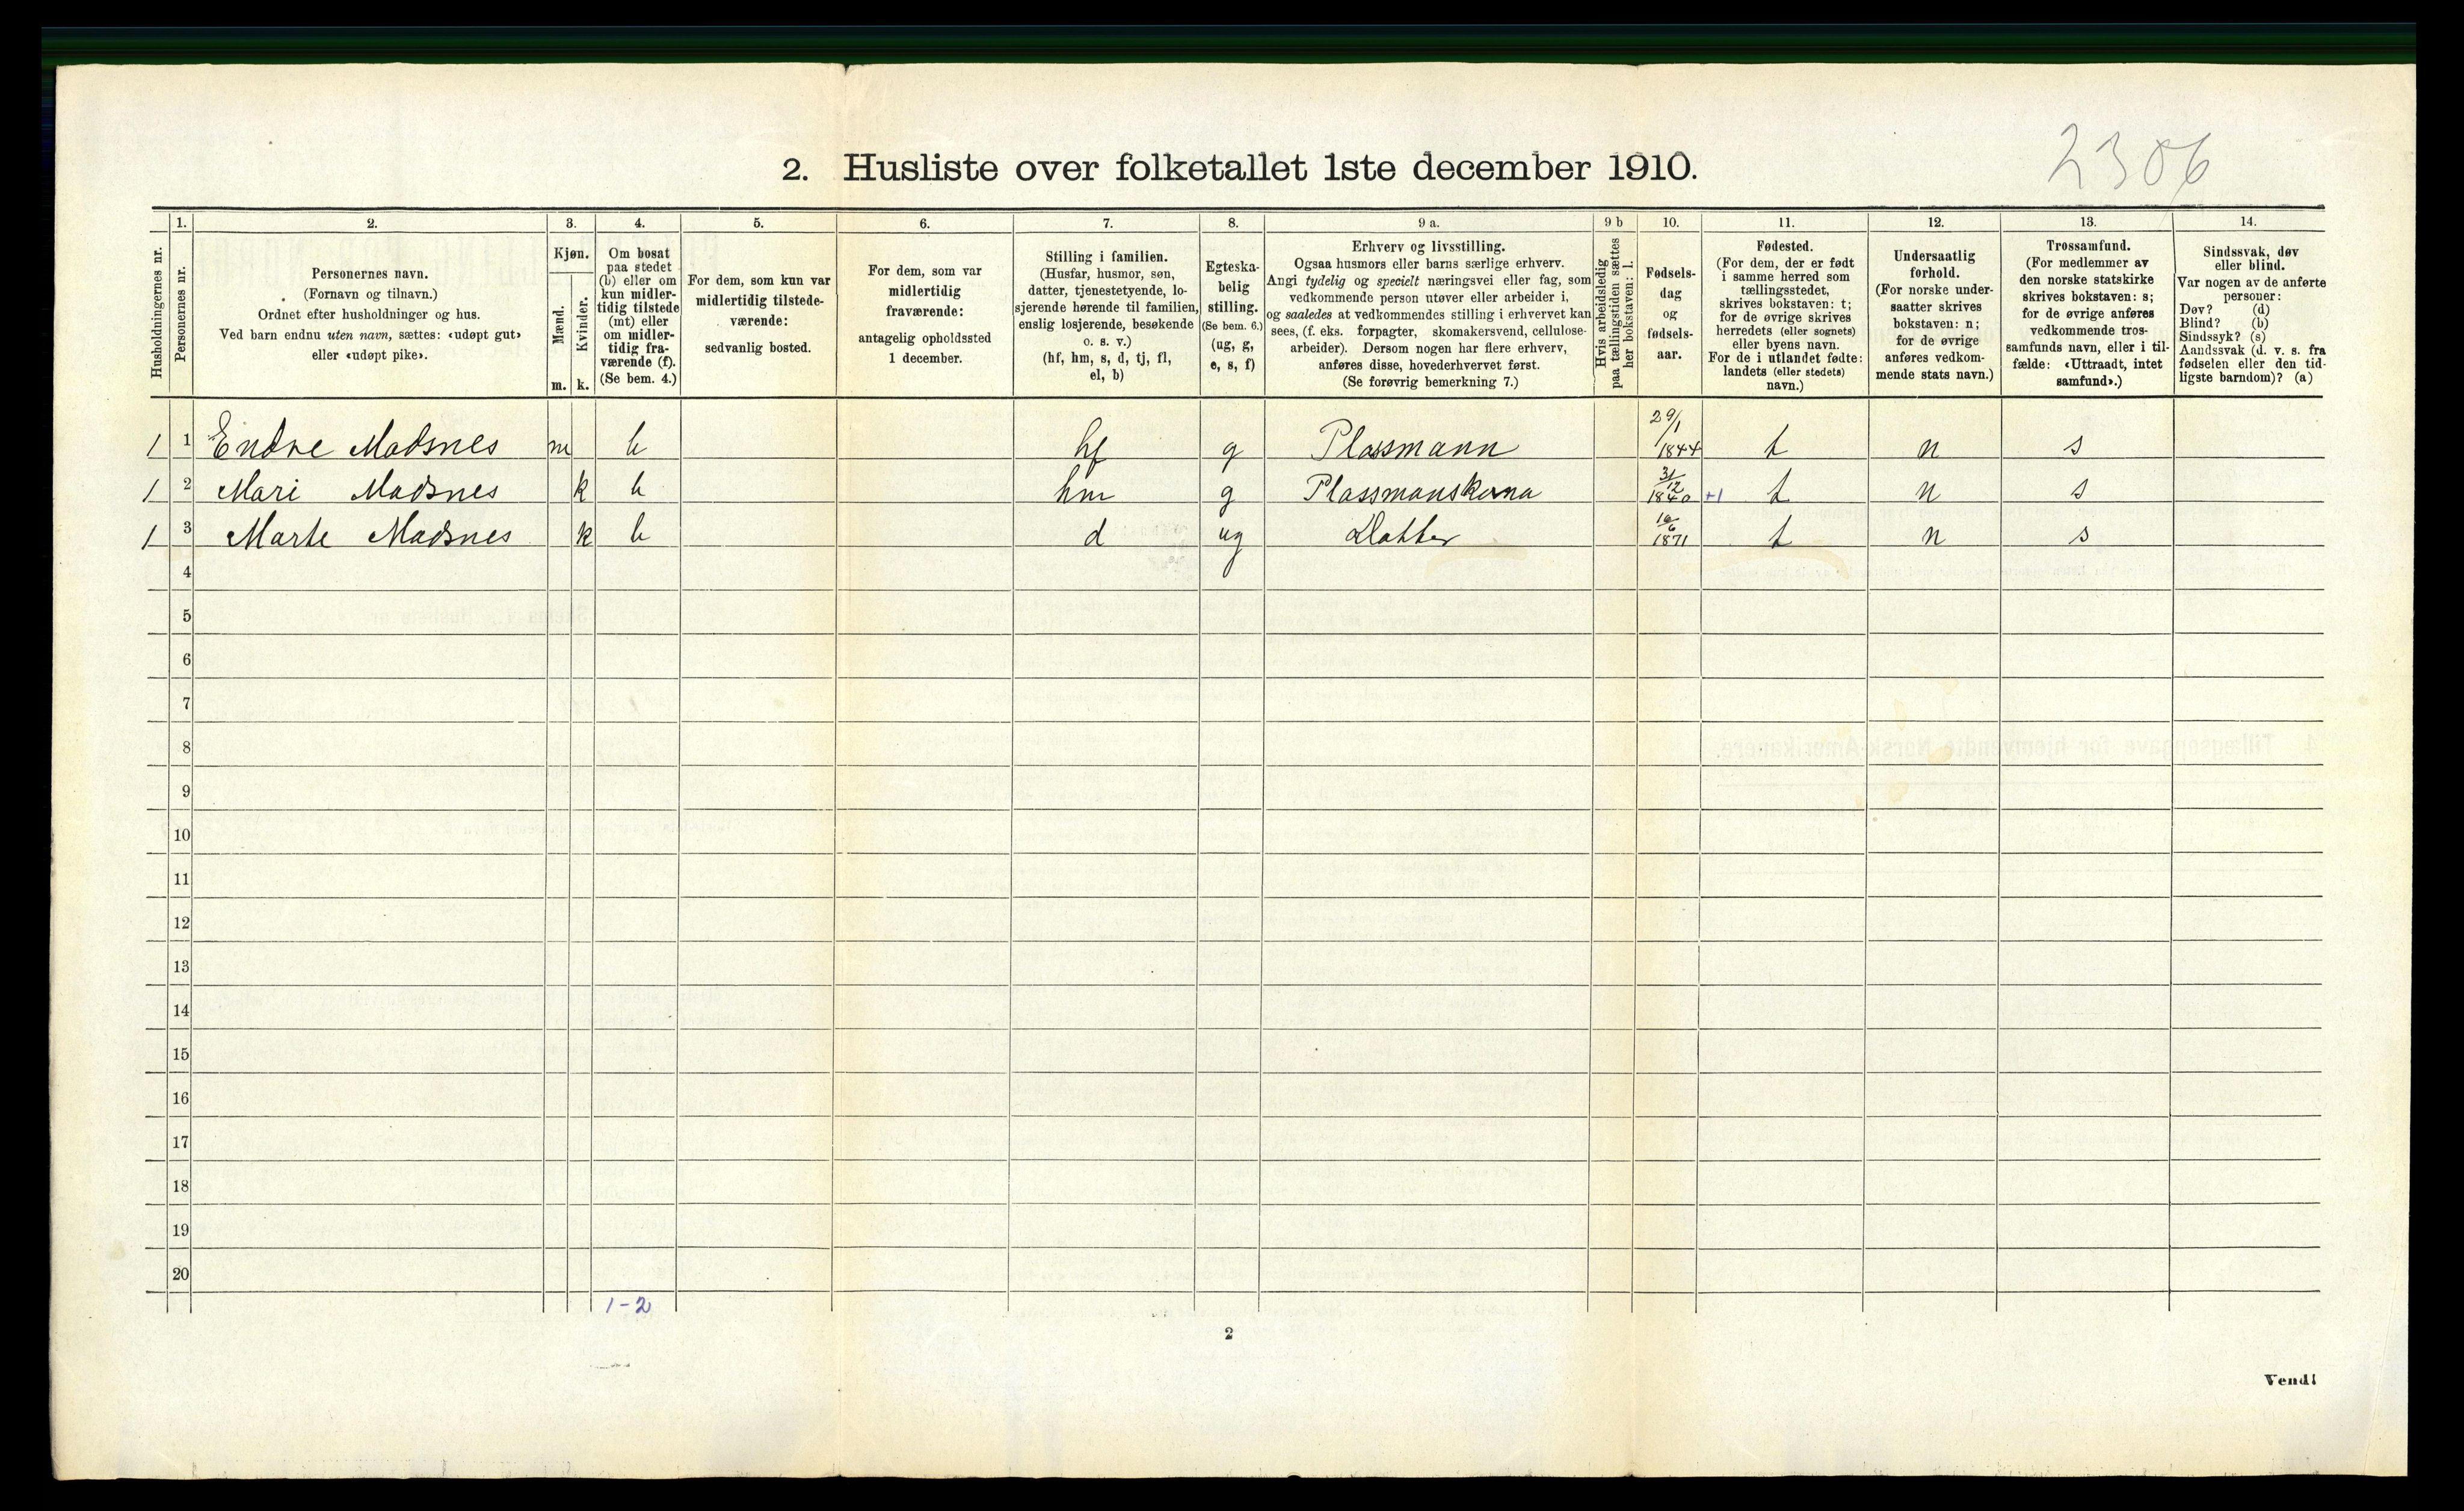 2306
2. Husliste over folketallet 1ste december 1910.
1. 2. 3. 4. 5. 6. 7. 8. 9 a. 9 b 10. 11. 12. 13. 14.
Husholdningernes nr.
Personernes nr.
Personernes navn.
(Fornavn og tilnavn.)
Ordnet efter husholdninger og hus.
Ved barn endnu uten navn, sættes: «udøpt gut»
eller «udøpt pike».
Kjøn.
Mænd.
Kvinder.
m. k.
Om bosat
paa stedet
(b) eller om
kun midler-
tidig tilstede
(mt) eller
om midler-
tidig fra-
værende (f).
(Se bem. 4.)
For dem, som kun var
midlertidig tilstede-
værende:
sedvanlig bosted.
For dem, som var
midlertidig
fraværende:
antagelig opholdssted
1 december.
Stilling i familien.
(Husfar, husmor, søn,
datter, tjenestetyende, lo-
sjerende hørende til familien,
enslig losjerende, besøkende
o. s. v.)
(hf, hm, s, d, tj, fl,
el, b)
Egteska-
belig
stilling.
(Se bem. 6.)
(ug, g,
e, s, f)
Erhverv og livsstilling.
Ogsaa husmors eller barns særlige erhverv.
Angi tydelig og specielt næringsvei eller fag, som
vedkommende person utøver eller arbeider i,
og saaledes at vedkommendes stilling i erhvervet kan
sees, (f. eks. forpagter, skomakersvend, cellulose-
arbeider). Dersom nogen har flere erhverv,
anføres disse, hovederhvervet først.
(Se forøvrig bemerkning 7.)
Hvis arbeidsledig
paa tællingstiden sættes
her bokstaven: l.
Fødsels-
dag
og
fødsels-
aar.
Fødested.
(For dem, der er født
i samme herred som
tællingsstedet,
skrives bokstaven: t;
for de øvrige skrives
herredets (eller sognets)
eller byens navn.
For de i utlandet fødte:
landets (eller stedets)
navn.)
Undersaatlig
forhold.
(For norske under-
saatter skrives
bokstaven: n;
for de øvrige
anføres vedkom-
mende stats navn.)
Trossamfund.
(For medlemmer av
den norske statskirke
skrives bokstaven: s;
for de øvrige anføres
vedkommende tros-
samfunds navn, eller i til-
fælde: «Uttraadt, intet
samfund».)
Sindssvak, døv
eller blind.
Var nogen av de anførte
personer:
Døv? (d)
Blind? (b)
Sindssyk? (s)
Aandssvak (d. v. s. fra
fødselen eller den tid-
ligste barndom)? (a)
1 1 Endre Madsnes m b hf g Plassmann 29/1 1844 t n s
1 2 Mari Madsnes k b hm g Plassmanskona 31/12 1840 +1 t n s
1 3 Marte Madsnes k b d ug Datter 16/6 1871 t n s
4
5
6
7
8
9
10
11
12
13
14
15
16
17
18
19
20
1-2
2
Vend!